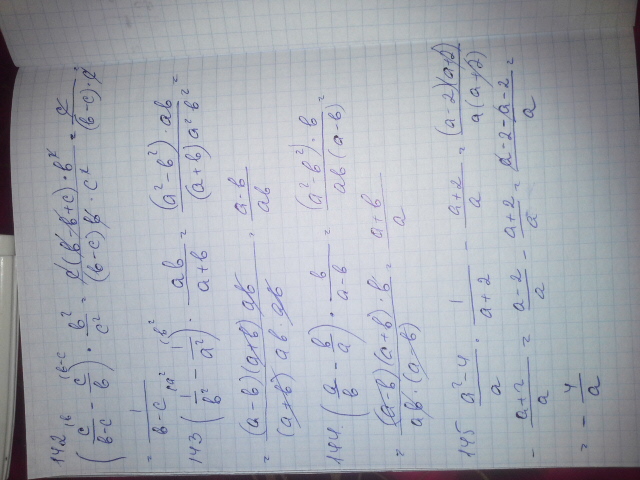 142
(c/(b-c) - c/b) · b²/c² = c(b-b+c)·b²/((b-c)b·c²) = c/((b-c)·c) =
= 1/(b-c)
143 (1/b² - 1/a²) · ab/(a+b) = (a²-b²)·ab/((a+b)a²b²) =
= (a-b)(a+b)ab/((a+b)ab·ab) = (a-b)/ab
144 (a/b - b/a) · b/(a-b) = (a²-b²)·b/(ab(a-b)) =
= (a-b)(a+b)·b/(ab·(a-b)) = (a+b)/a
145 (a²-4)/a · 1/(a+2) - (a+2)/a = (a-2)(a+2)/(a(a+2)) -
- (a+2)/a = (a-2)/a - (a+2)/a = (a-2-a-2)/a =
= - 4/a